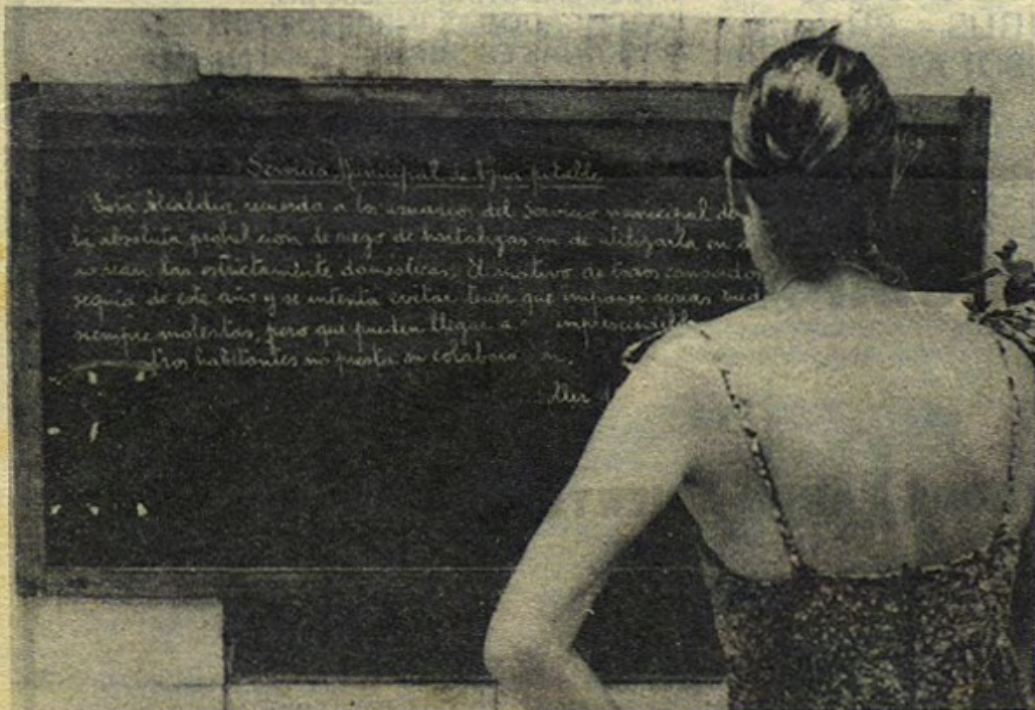 Servicio Municipal de Agua potable
Esta Alcaldia recuerda a los usuarios del servicio municipal de
la absoluta prohibicion de riego de hortalizas ni de utilizarla en
no sean los estrictamente domesticos. El motivo de
sequia de este año y se intenta evitar tener que imponer serias
siempre molestas, pero que pueden llegar a imprescindible
habitantes no presta su